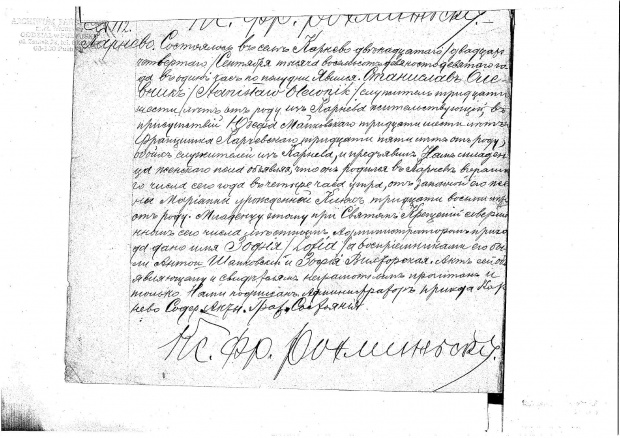 Кс. Фр. Рохминьскі.
112.
Карнево. Состоялось въ селѣ Карнево двѣнадцатаго/двадцать
четвертаго/Сентября тысяча восемьсотъ девяносто девятаго го
да въ одинъ часъ по полудни. Явился Станиславъ Оле
/Stanisław/ служитель тридцати
шести лѣтъ отъ роду изъ Карнева жительствующій, въ
присутствіи Юзефа тридцати шести лѣтъ и
Францишка Карвовскаго тридцати пяти лѣтъ отъ роду,
обоихъ служителей изъ Карнева, и предъявилъ Намъ младен
ца женскаго пола объявляя, что онъ родился въ Карневѣ
го числа сего года въ четыре часа утра, отъ законной его же
ны Маріанны урожденной тридцати восьми лѣтъ
отъ роду. Младенцу этому при Святомъ Крещеніи совершен
номъ сего числа Администраторомъ прихо
да дано имя Зофія /Zofia/ а воспріемниками его бы
ли Антонъ и Зофія Актъ сей объ
являющему и свидѣтелямъ неграмотнымъ прочитанъ и
только Нами подписанъ. Администраторъ прихода Кар
нево Содерж. Акты Граж. Состоянія.
Кс. Фр. Рохминьскі.